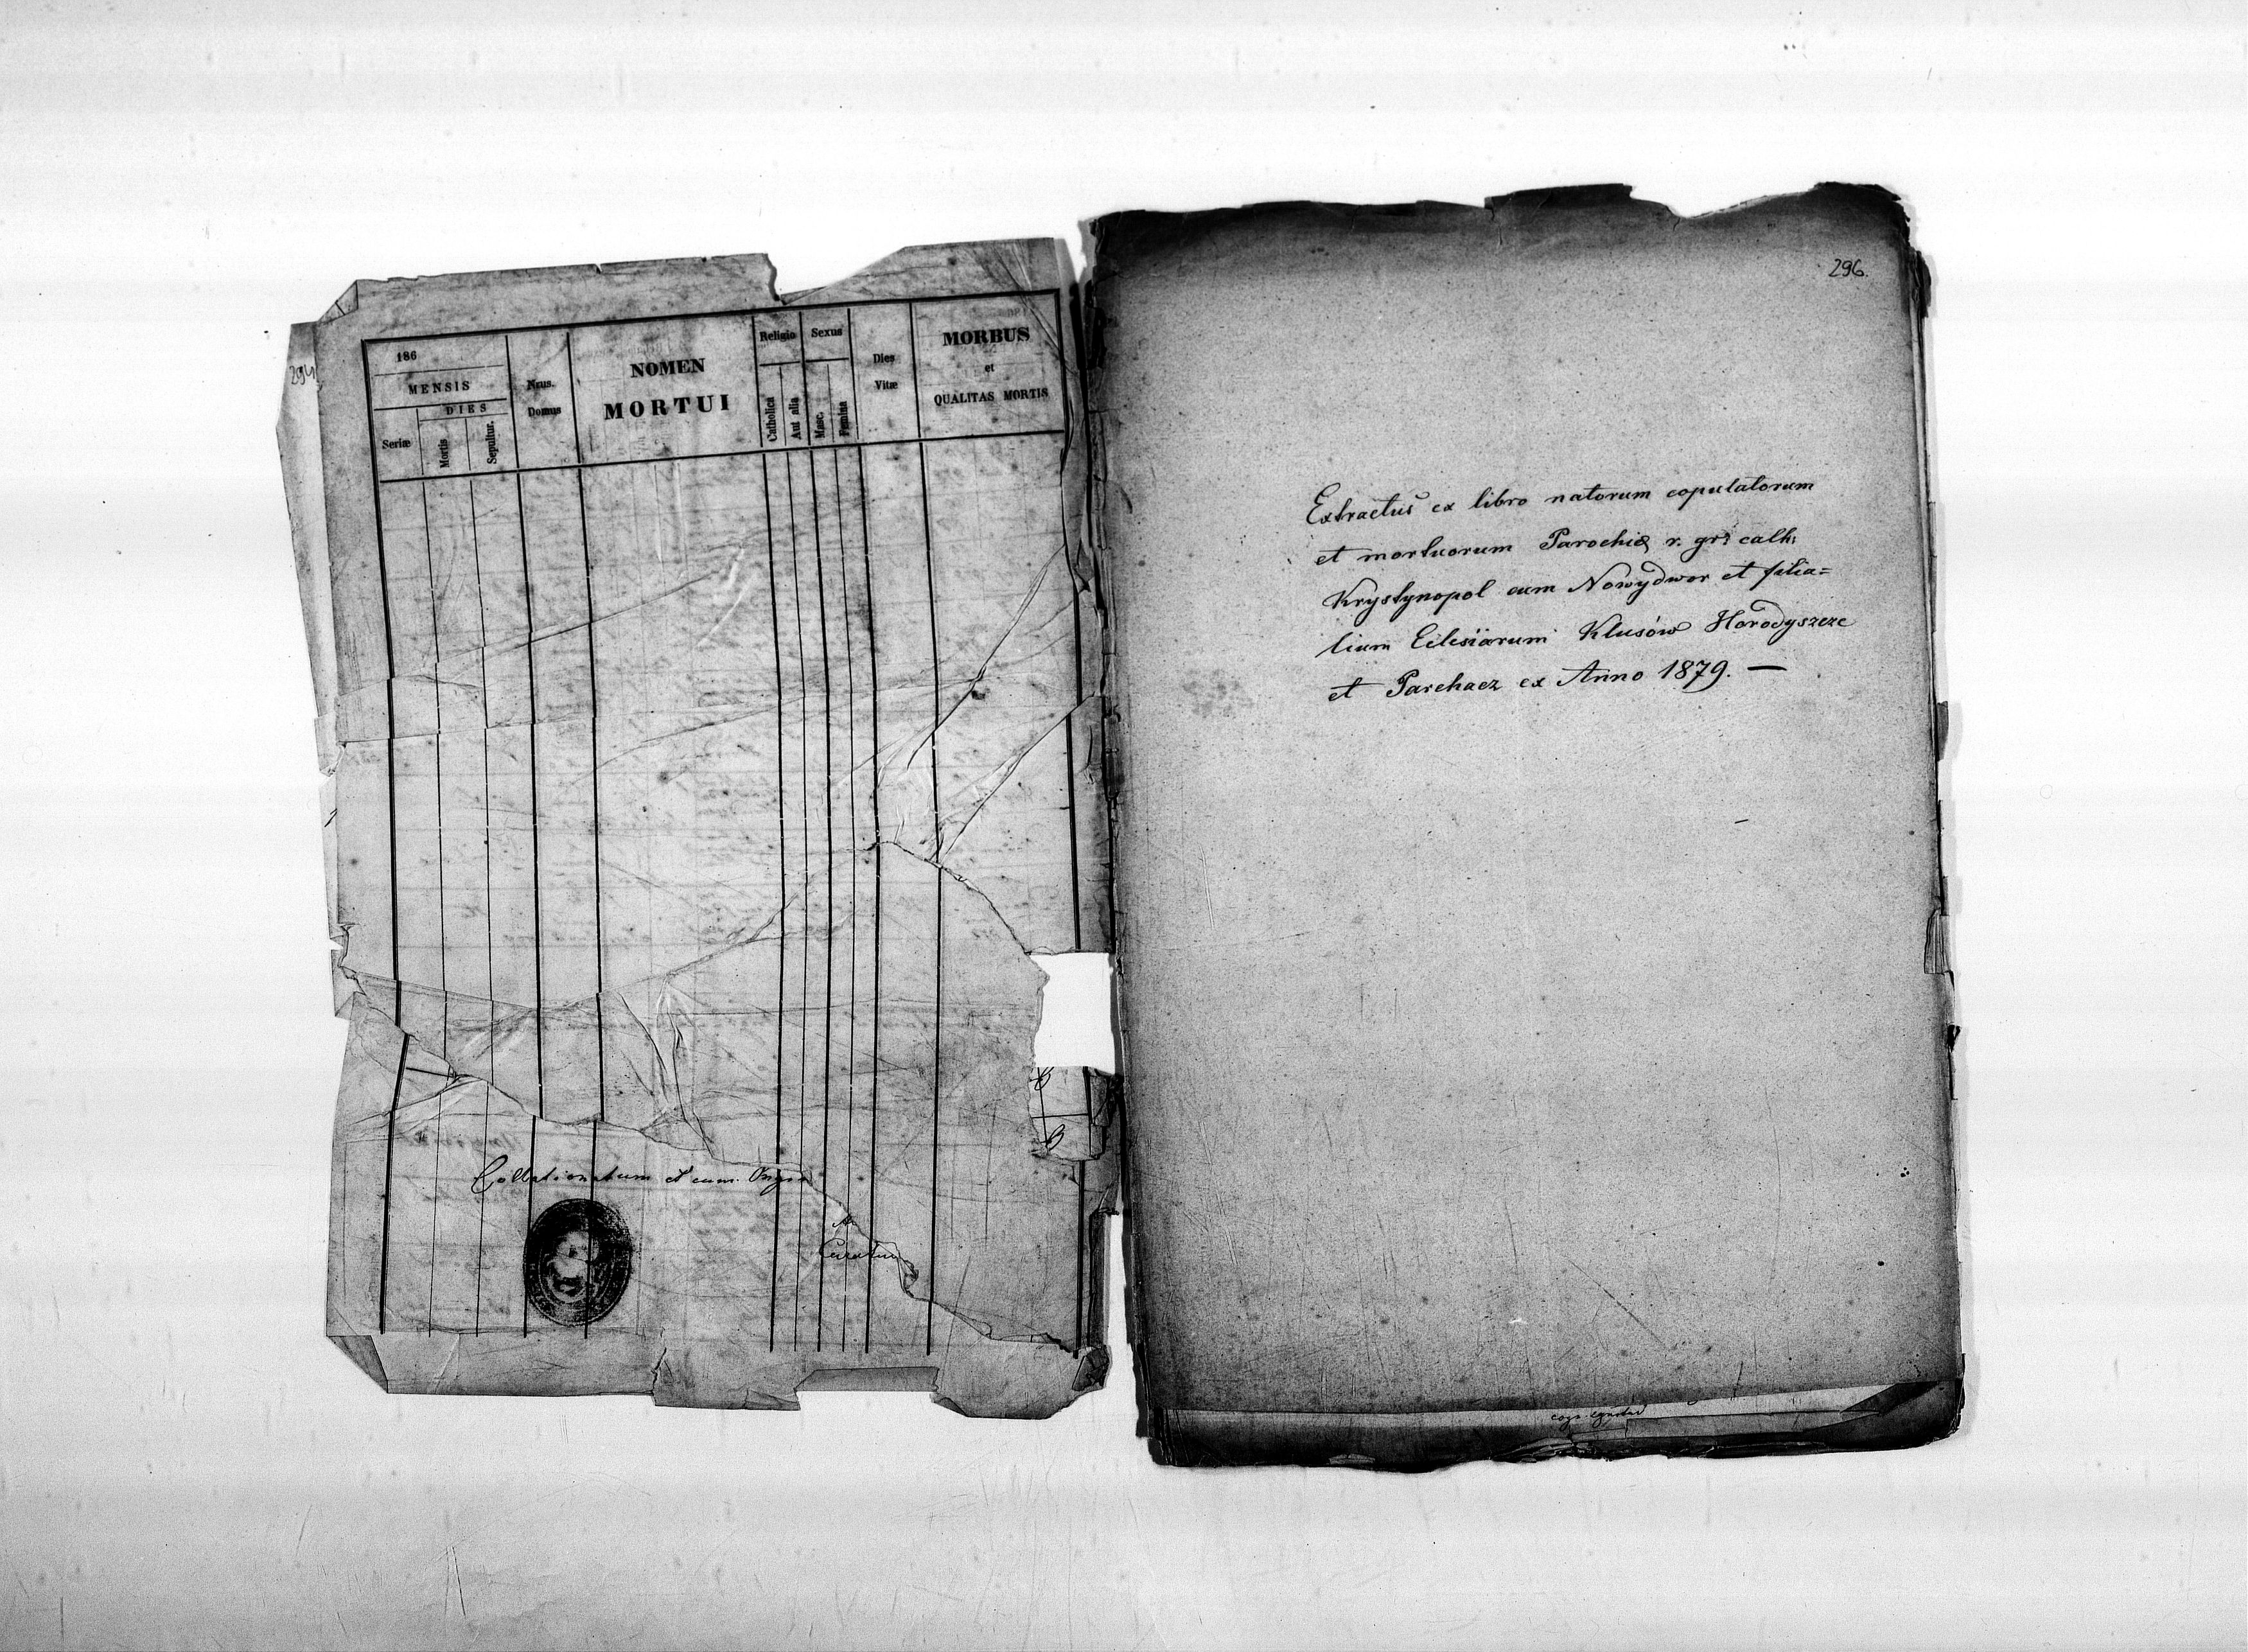 294
186
MENSIS
DIES
Seriæ
Mortis
Sepultur.
Nrus.
Domus
NOMEN
MORTUI
Religio
Catholica
Aut alia
Sexus
Masc.
Femina
Dies
Vitæ
MORBUS
et
QUALITAS MORTIS
Collationatum et cum
296.
Extractus ex libro natorum copulatorum
et mortuorum Parochiæ r. gr: cath:
Krystynopol cum Nowydwor et filia=
lium Eclesiarum Klusów Horodyszcze
et Parchacz ex Anno 1879. —